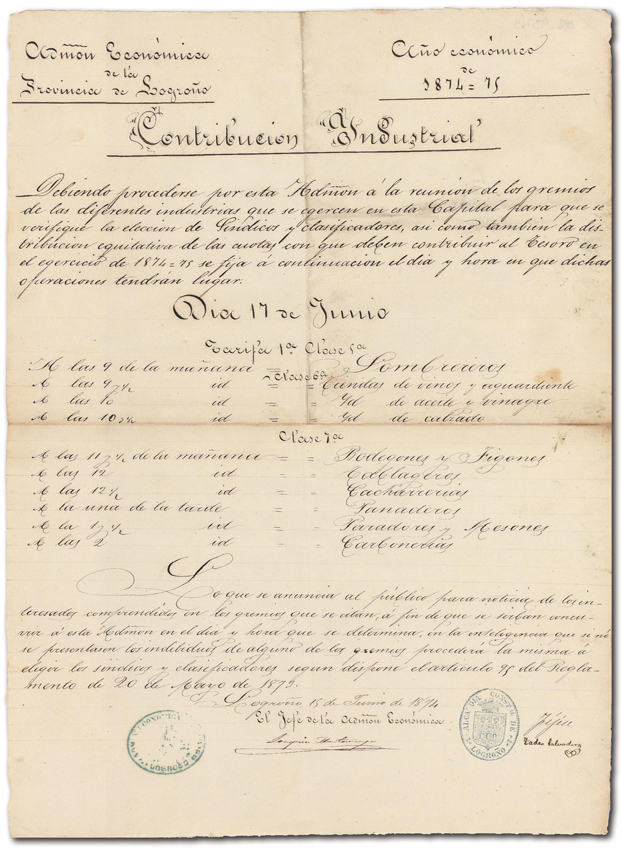 Admñon Económica
de la
Provincia de Logroño
Año económico
de
1874=75
"Contribucion Industrial"
Debiendo procederse por esta Admñon á la reunion de los gremios
de las diferentes industrias que se egercen en esta Capital para que se
verifique la eleccion de Síndicos y clasificadores, asi como tambien la dis-
tribucion equitativa de las cuotas con que deben contribuir al Tesoro en
el egercicio de 1874=75 se fija á continuacion el dia y hora en que dichas
operaciones tendrán lugar.
Dia 17 de Junio
Tarifa 1ª Clase 5ª
A las 9 de la mañana = Sombrereros
Clase 6ª
A las 9 y ½ id = = Tiendas de vinos y aguardiente
A las 10 id = = Yd de aceite y vinagre
A las 10 y ½ id = = Yd de calzado
Clase 7ª
A las 11 y ½ de la mañana = = Bodegones y Figones
A las 12 id = = Tablageros
A las 12 ½ id = = Cacharrerias
A la una de la tarde = = Panaderos
A la 1 y ½ id = = Paradores y Mesones
A las 2 id = = Carbonerias
Lo que se anuncia al público para noticia de los in-
teresados comprendidos en los gremios que se citan, á fin de que se sirban concur-
rir á esta Admñon en el dia y hora que se determina, en la inteligencia que si no
se presentasen los individuos de alguno de los gremios procederá la misma á
elegir los síndicos y clasificadores segun dispone el articulo 95 del Regla-
mento de 20 de Mayo de 1873.
Logroño 15 de Junio de 1874
El Jefe de la Admñon Económica
ALCALDIA CONSTNAL DE LOGROÑO
Fíjese
Tadeo Salvador
ECONOMICA LOGROÑO